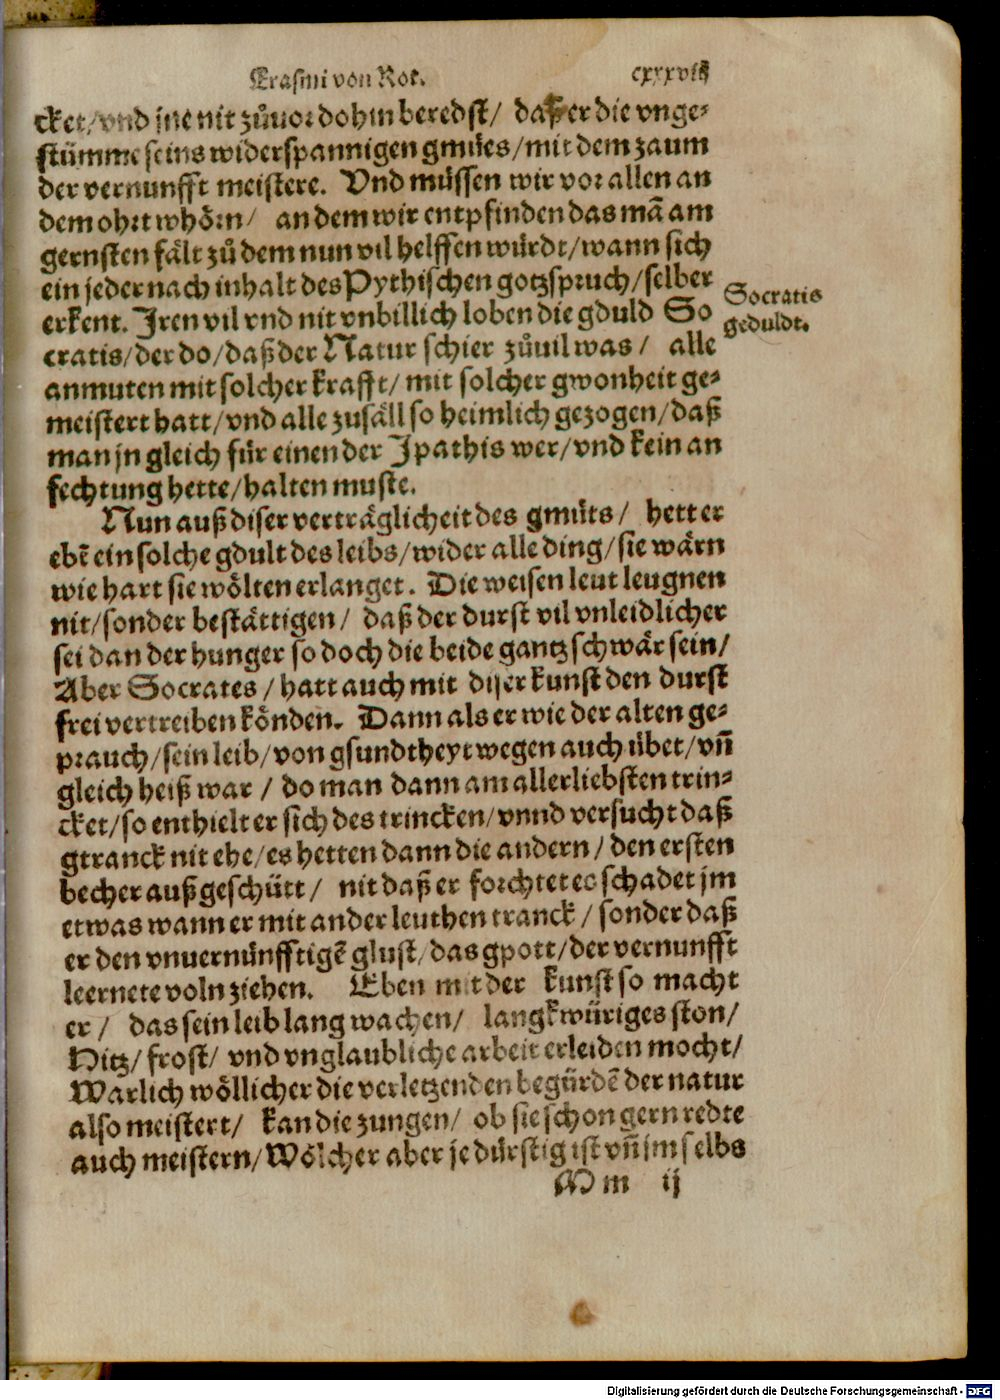 Erasmi von Rot. cxxxvij
cket/vnd jne nit zůuor dohin beredst/ daß er die vnge⸗
stümme seins widerspannigen gmütes/mit dem zaum
der vernunfft meistere. Vnd müssen wir vor allen an
dem ohrt whörn/ an dem wir entpfinden das mã am
gernsten fält zů dem nun vil helffen würdt/wann sich
ein jeder nach inhalt des Pythischen gotzspruch/selber
erkent. Jren vil vnd nit vnbillich loben die gduld So
Socratis
geduldt.
cratis/der do/daß der Natur schier zůuil was/ alle
anmuten mit solcher krafft/mit solcher gwonheit ge⸗
meistert hatt/vnd alle zufäll so heimlich gezogen/daß
man jn gleich für einen der Jpathis wer/vnd kein an
fechtung hette/halten muste.
Nun auß diser verträglicheit des gmüts/ hett er
ebẽ ein solche gdult des leibs/wider alle ding/sie wärn
wie hart sie wölten erlanget. Die weisen leut leugnen
nit/sonder bestättigen/ daß der durst vil vnleidlicher
sei dan der hunger so doch die beide gantz schwär sein/
Aber Socrates/hatt auch mit diser kunst den durst
frei vertreiben könden. Dann als er wie der alten ge⸗
prauch/sein leib/von gsundtheyt wegen auch übet/vñ
gleich heiß war/ do man dann am allerliebsten trin⸗
cket/so enthielt er sich des trincken/vnnd versucht daß
gtranck nit ehe/es hetten dann die andern/den ersten
becher außgeschütt/ nit daß er forchtet es schadet jm
etwas wann er mit ander leuthen tranck/sonder daß
er den vnuernünfftigẽ glust/das gpott/der vernunfft
leernete voln ziehen. Eben mit der kunst so macht
er/ das sein leib lang wachen/ langkwüriges ston/
Hitz/frost/ vnd vnglaubliche arbeit erleiden mocht/
Warlich wöllicher die verletzenden begürdẽ der natur
also meistert/ kan die zungen/ ob sie schon gern redte
auch meistern/Wölcher aber je dürstig ist vñ jm selbs
Mm ij
Digitalisierung gefördert durch die Deutsche Forschungsgemeinschaft - DFG